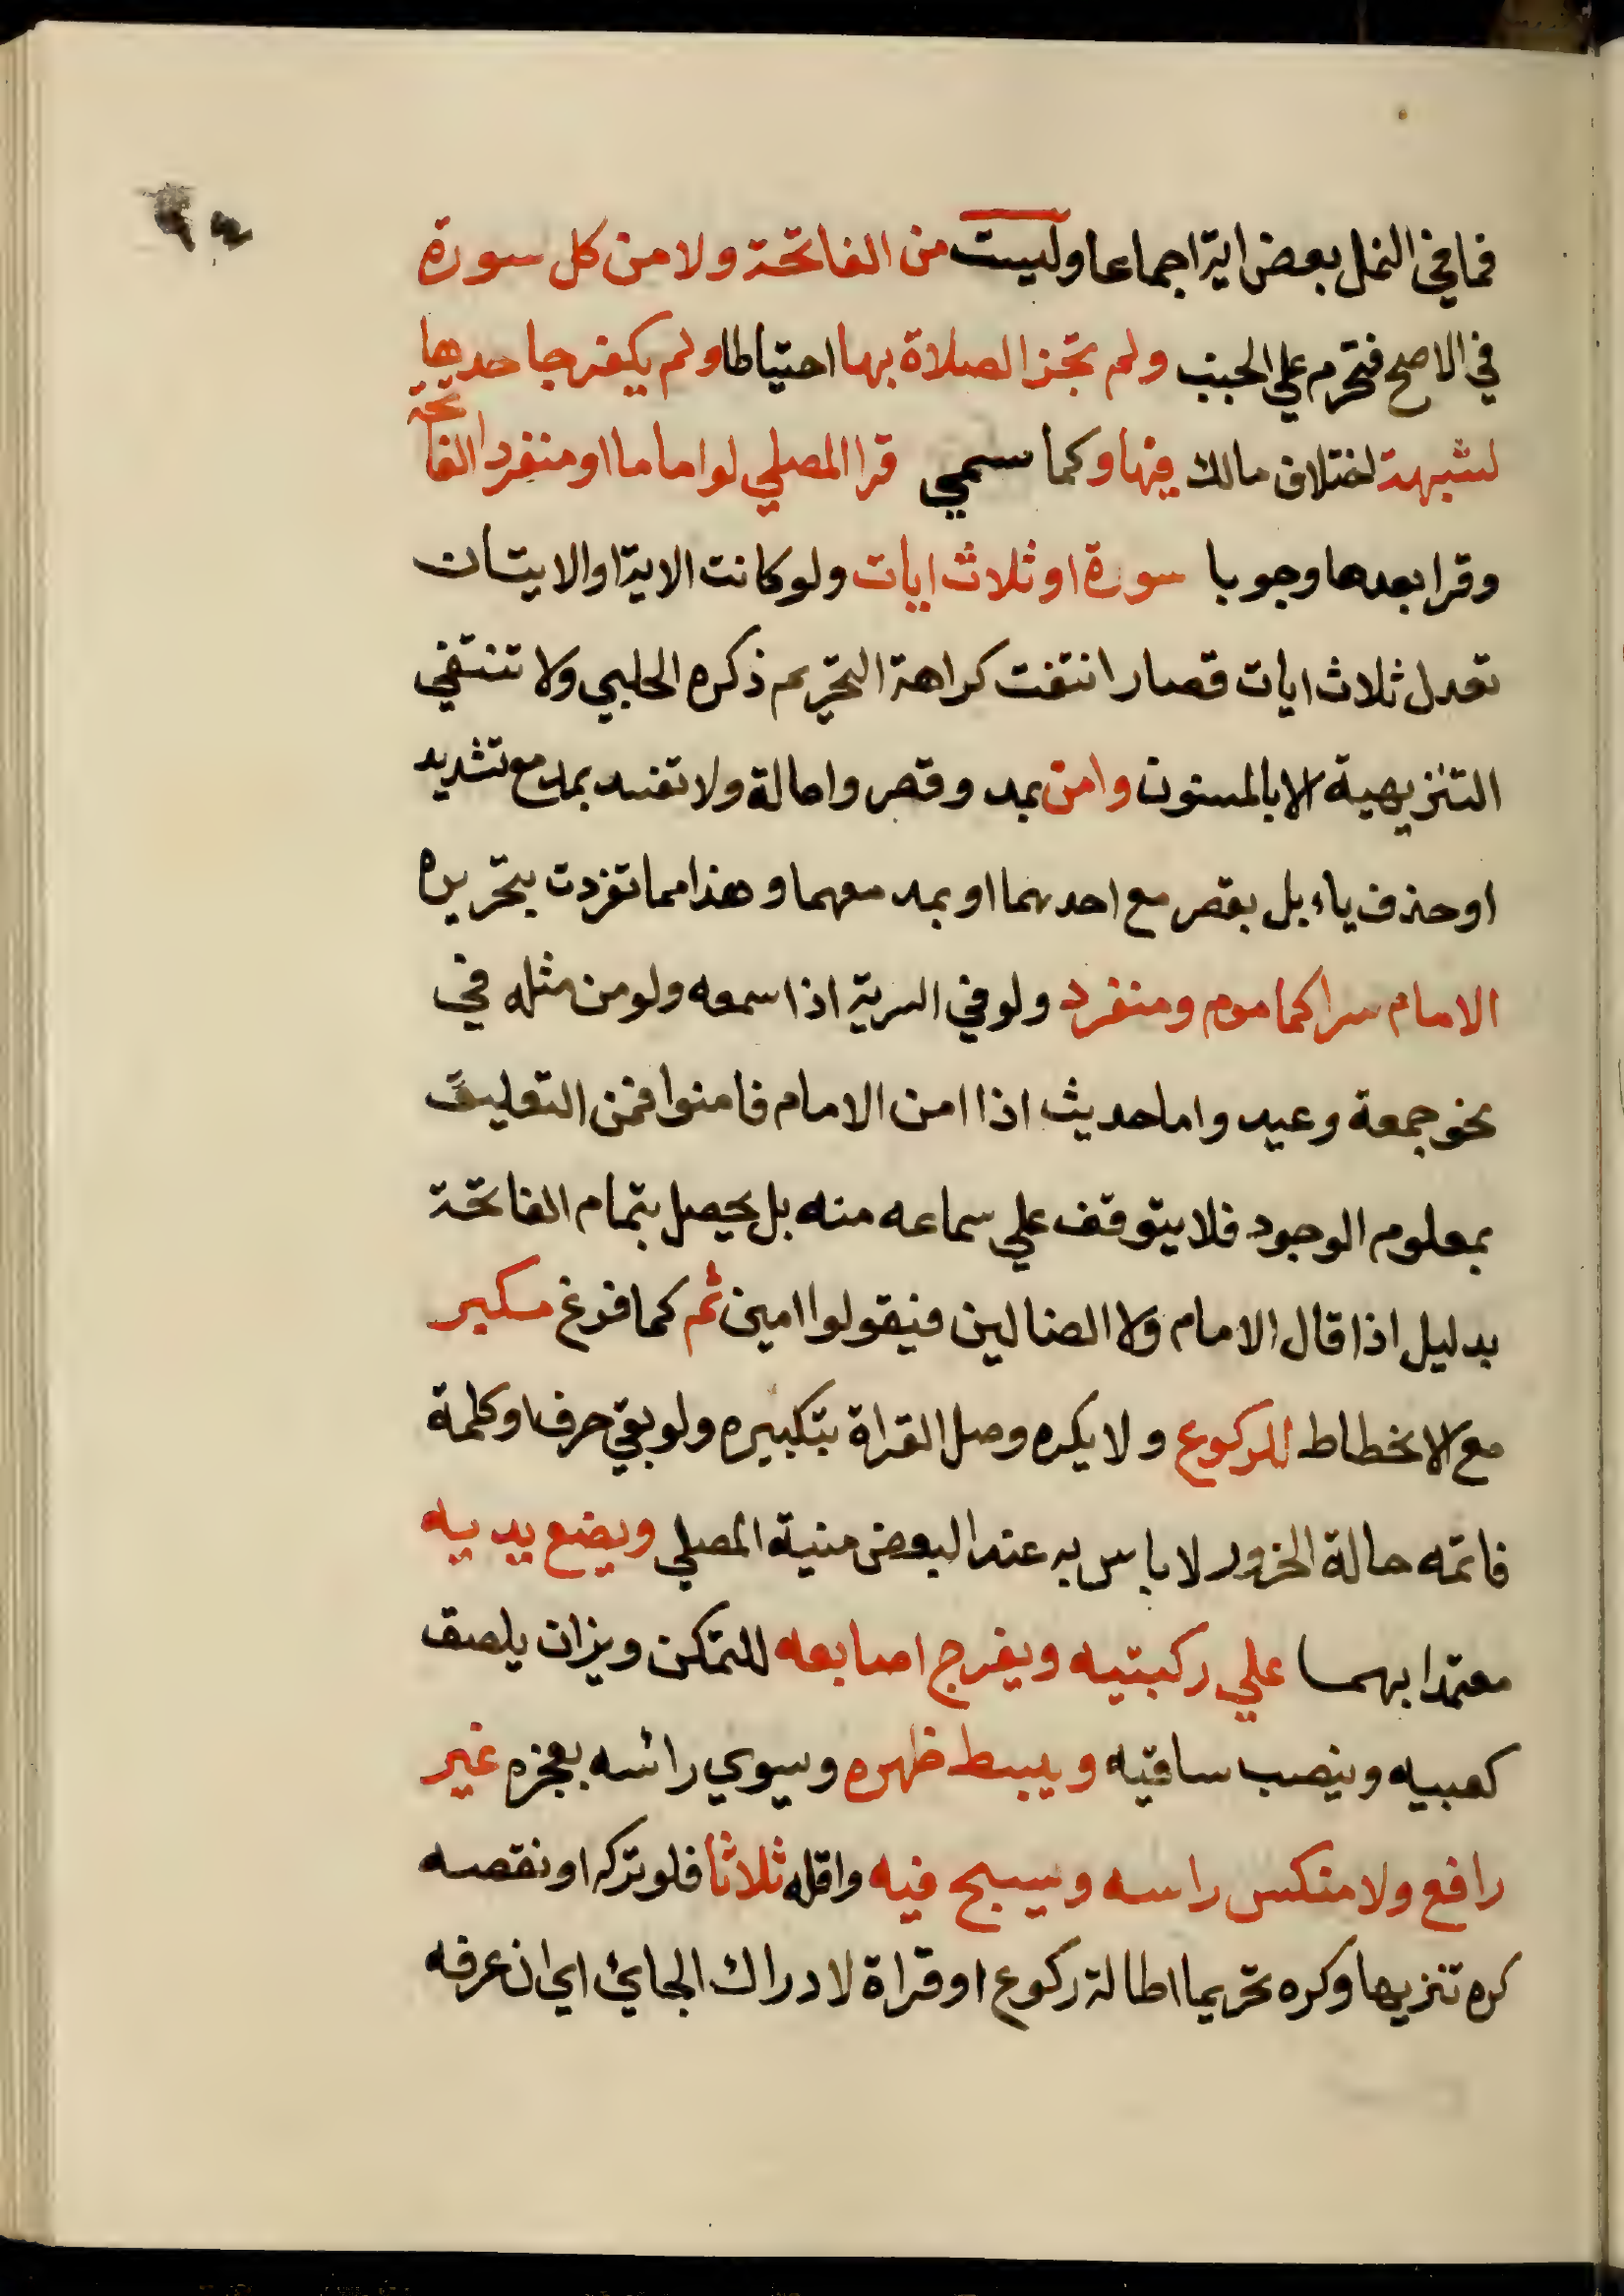 فما في النمل بعض اية اجماعا وليست من الفاتحة ولا من كل سورة
في الاصح فتحرم علي الجنب ولم تجز الصلاة بها احتياطا ولم يكفر جاحدها
لشبهة اختلاف مالك فيها وكما سمي قرا المصلي لو اماما او منفردا الفاتحة
وقرا بعدها وجوبا سورة او ثلاث ايات ولو كانت الاية او الايتان
تعدل ثلاث ايات قصار انتفت كراهة التحريم ذكره الحلبي ولا تنتفي
التنزيهية الا بالمسنون وامن بمد وقصر وامالة ولا تفسد بمد مع تشديد
او حذف ياء بل بقصر مع احدهما او بمد معهما وهذا مما تفردت بتحريره
الامام سرا كماموم ومنفرد ولو في السرية اذا سمعه ولو من مثله في
نحو جمعة وعيد واما حديث اذا امن الامام فامنوا فمن التعليق
بمعلوم الوجود فلا يتوقف علي سماعه منه بل يحصل بتمام الفاتحة
بدليل اذا قال الامام ولا الضالين فيقولوا امين ثم كما فرغ مكبر
مع الانحطاط للركوع ولا يكره وصل القراة بتكبيره ولو بقي حرف او كلمة
فاتمه حالة الخرور لا باس به عند البعض منية المصلي ويضع يديه
معتمدا بهما علي ركبتيه ويفرج اصابعه للتمكن ويزان يلصق
كعبيه وينصب ساقيه ويبسط ظهره ويسوي رائسه بعجزه غير
رافع ولا منكس راسه ويسبح فيه واقله ثلاثا فلو تركه او نقصه
كره تنزيها وكره تحريما اطالة ركوع او قراة لادراك الجائي اي ان عرفه